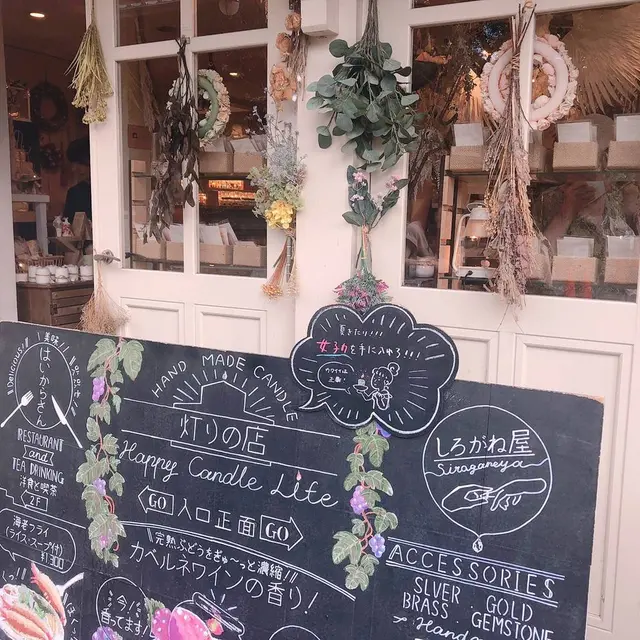 Delicious!
美味
はいからさん
RESTAURANT
and
TEA DRINKING
洋食と喫茶
2F
海老フライ
(ライス・スープ付)
¥1300
HAND MADE CANDLE
灯りの店
Happy Candle Life
GO 入口正面 GO
完熟ぶどうをぎゅ〜っと濃縮!!
カベルネワインの香り!
今!
香ってます!
夏きたり!!!
女子力を手に入れろ!!!
カワイイは
正義!
しろがね屋
Siroganeya
ACCESSORIES
SLVER · GOLD
BRASS · GEMSTONE